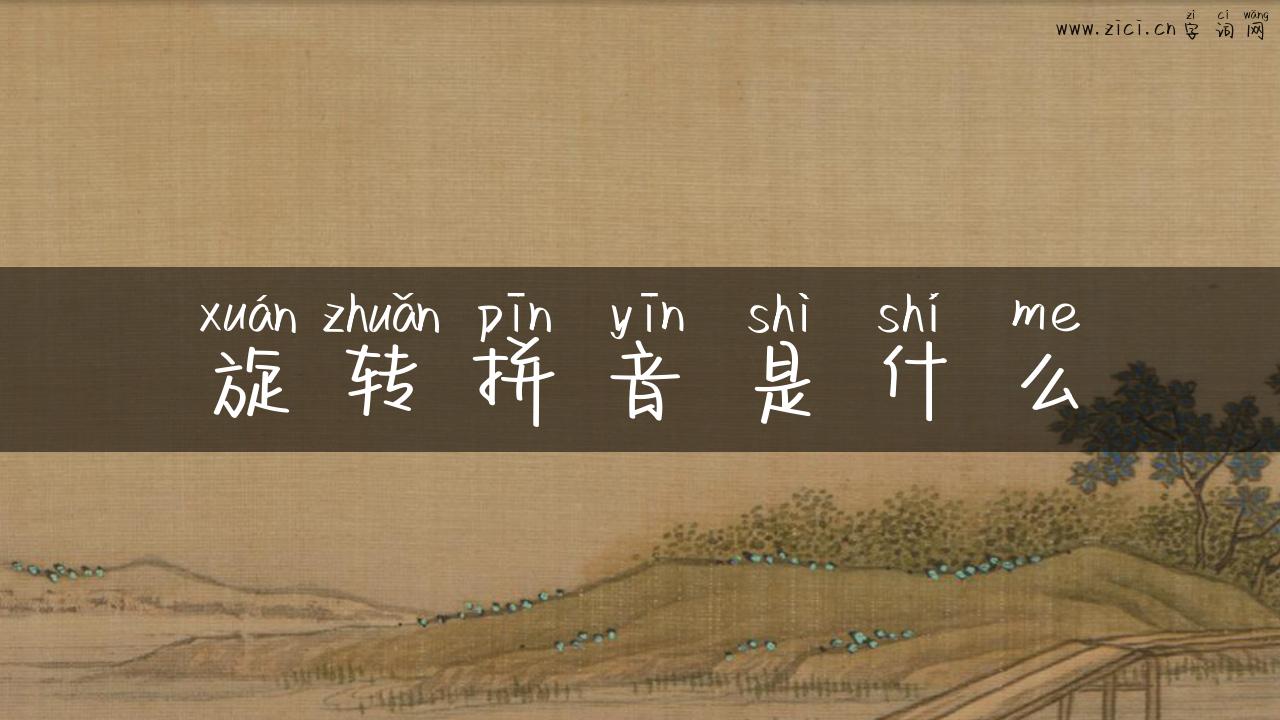 zì cí wǎng
www.zici.cn字词网
xuán zhuǎn pīn yīn shì shí me
旋转拼音是什么